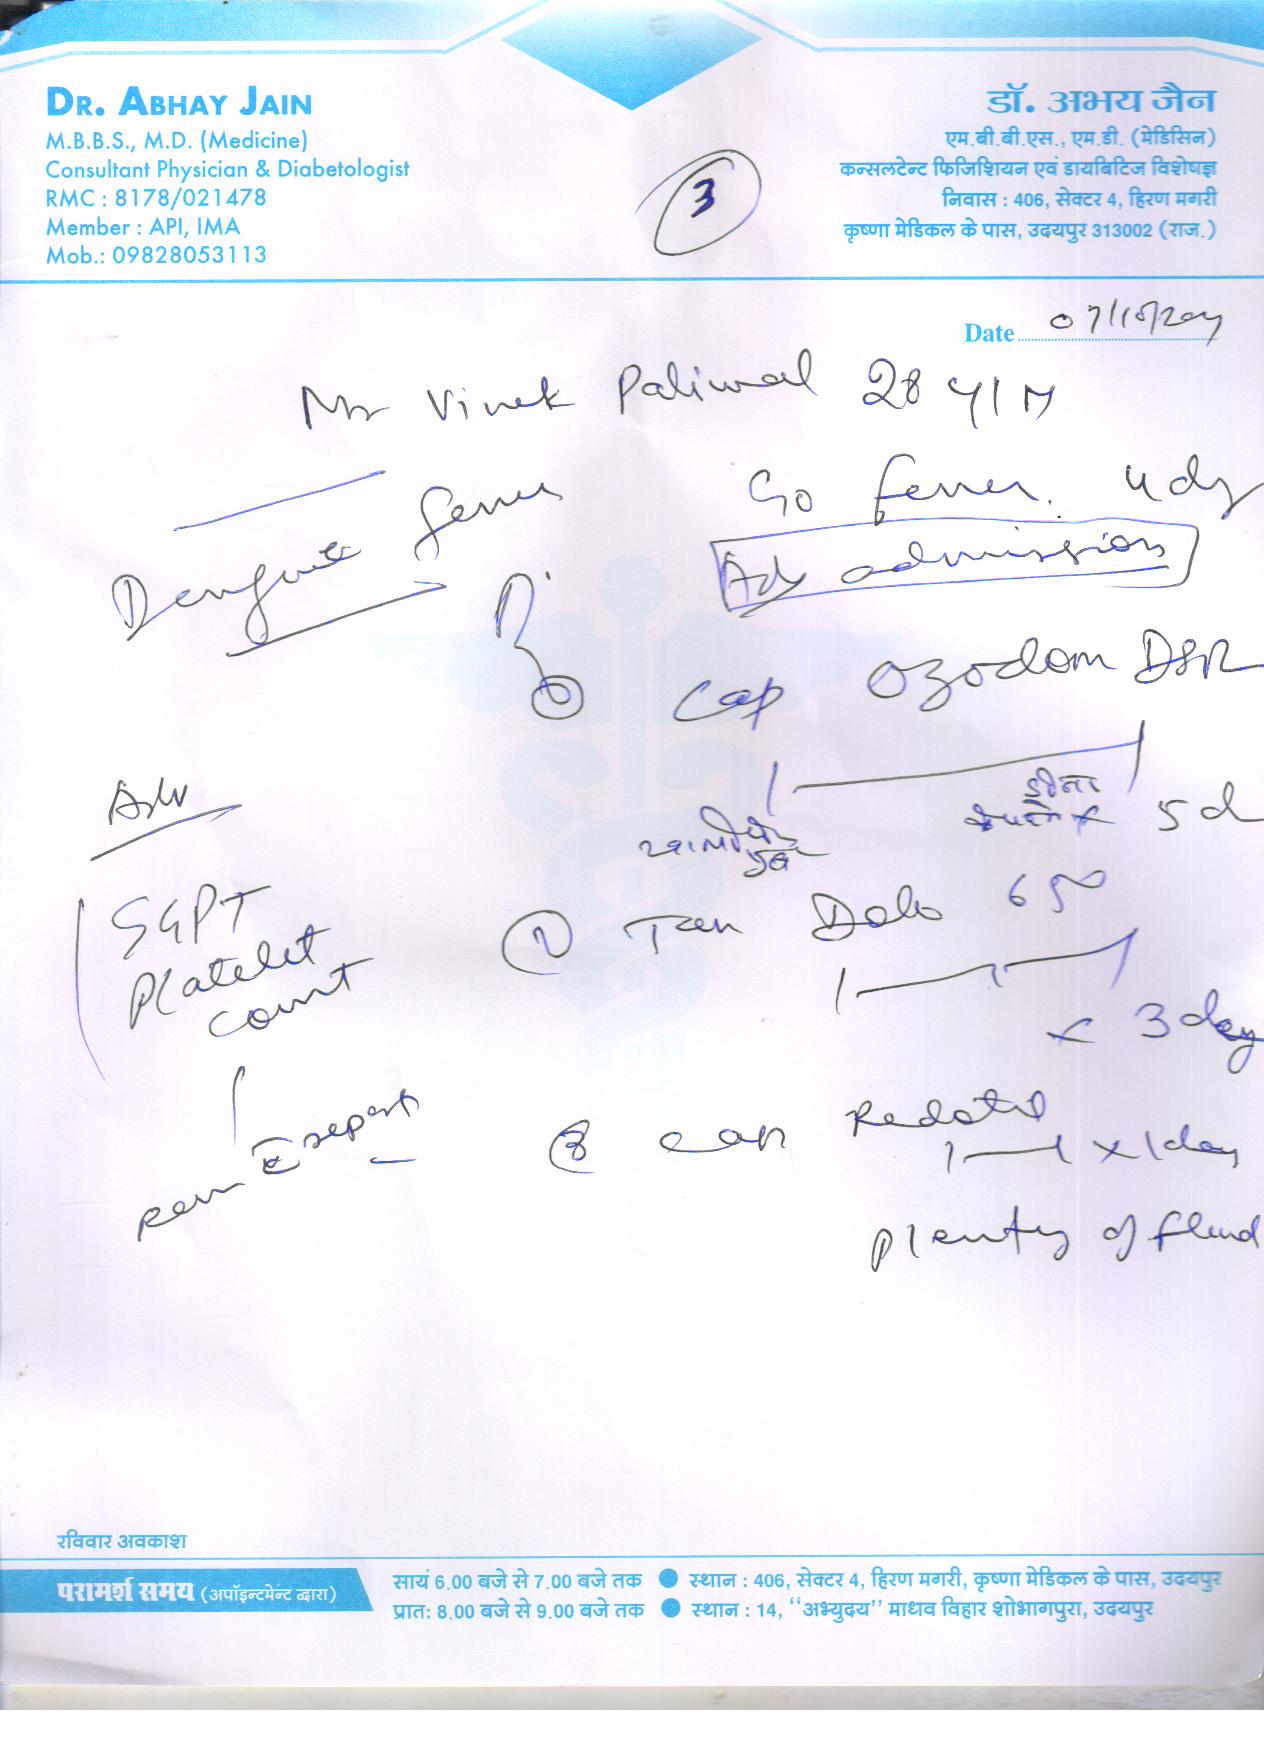 DR. ABHAY JAIN
M.B.B.S., M.D. (Medicine)
Consultant Physician & Diabetologist
RMC : 8178/021478
Member : API, IMA
Mob.: 09828053113
3
डॉ. अभय जैन
एम.बी.बी.एस., एम.डी. (मेडिसिन)
कन्सलटेन्ट फिजिशियन एवं डायबिटिज विशेषज्ञ
निवास : 406, सेक्टर 4, हिरण मगरी
कृष्णा मेडिकल के पास, उदयपुर 313002 (राज.)
Date 07/10/
Mr Vivek Paliwal 28 y/M
Dengue fever
fever. 4 dy
Adv admission
Cap Ozodom DSR
5 d
Adv
SGPT
Platelet
count
2 Dolo 650
x 3 day
report
3 Cap x 1 day
Plenty of fluid
रविवार अवकाश
परामर्श समय (अपॉइन्टमेन्ट द्वारा)
सायं 6.00 बजे से 7.00 बजे तक ● स्थान : 406, सेक्टर 4, हिरण मगरी, कृष्णा मेडिकल के पास, उदयपुर
प्रात: 8.00 बजे से 9.00 बजे तक ● स्थान : 14, "अभ्युदय" माधव विहार शोभागपुरा, उदयपुर